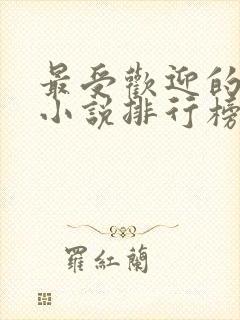 最受歡迎的
小說排行榜
羅紅蘭